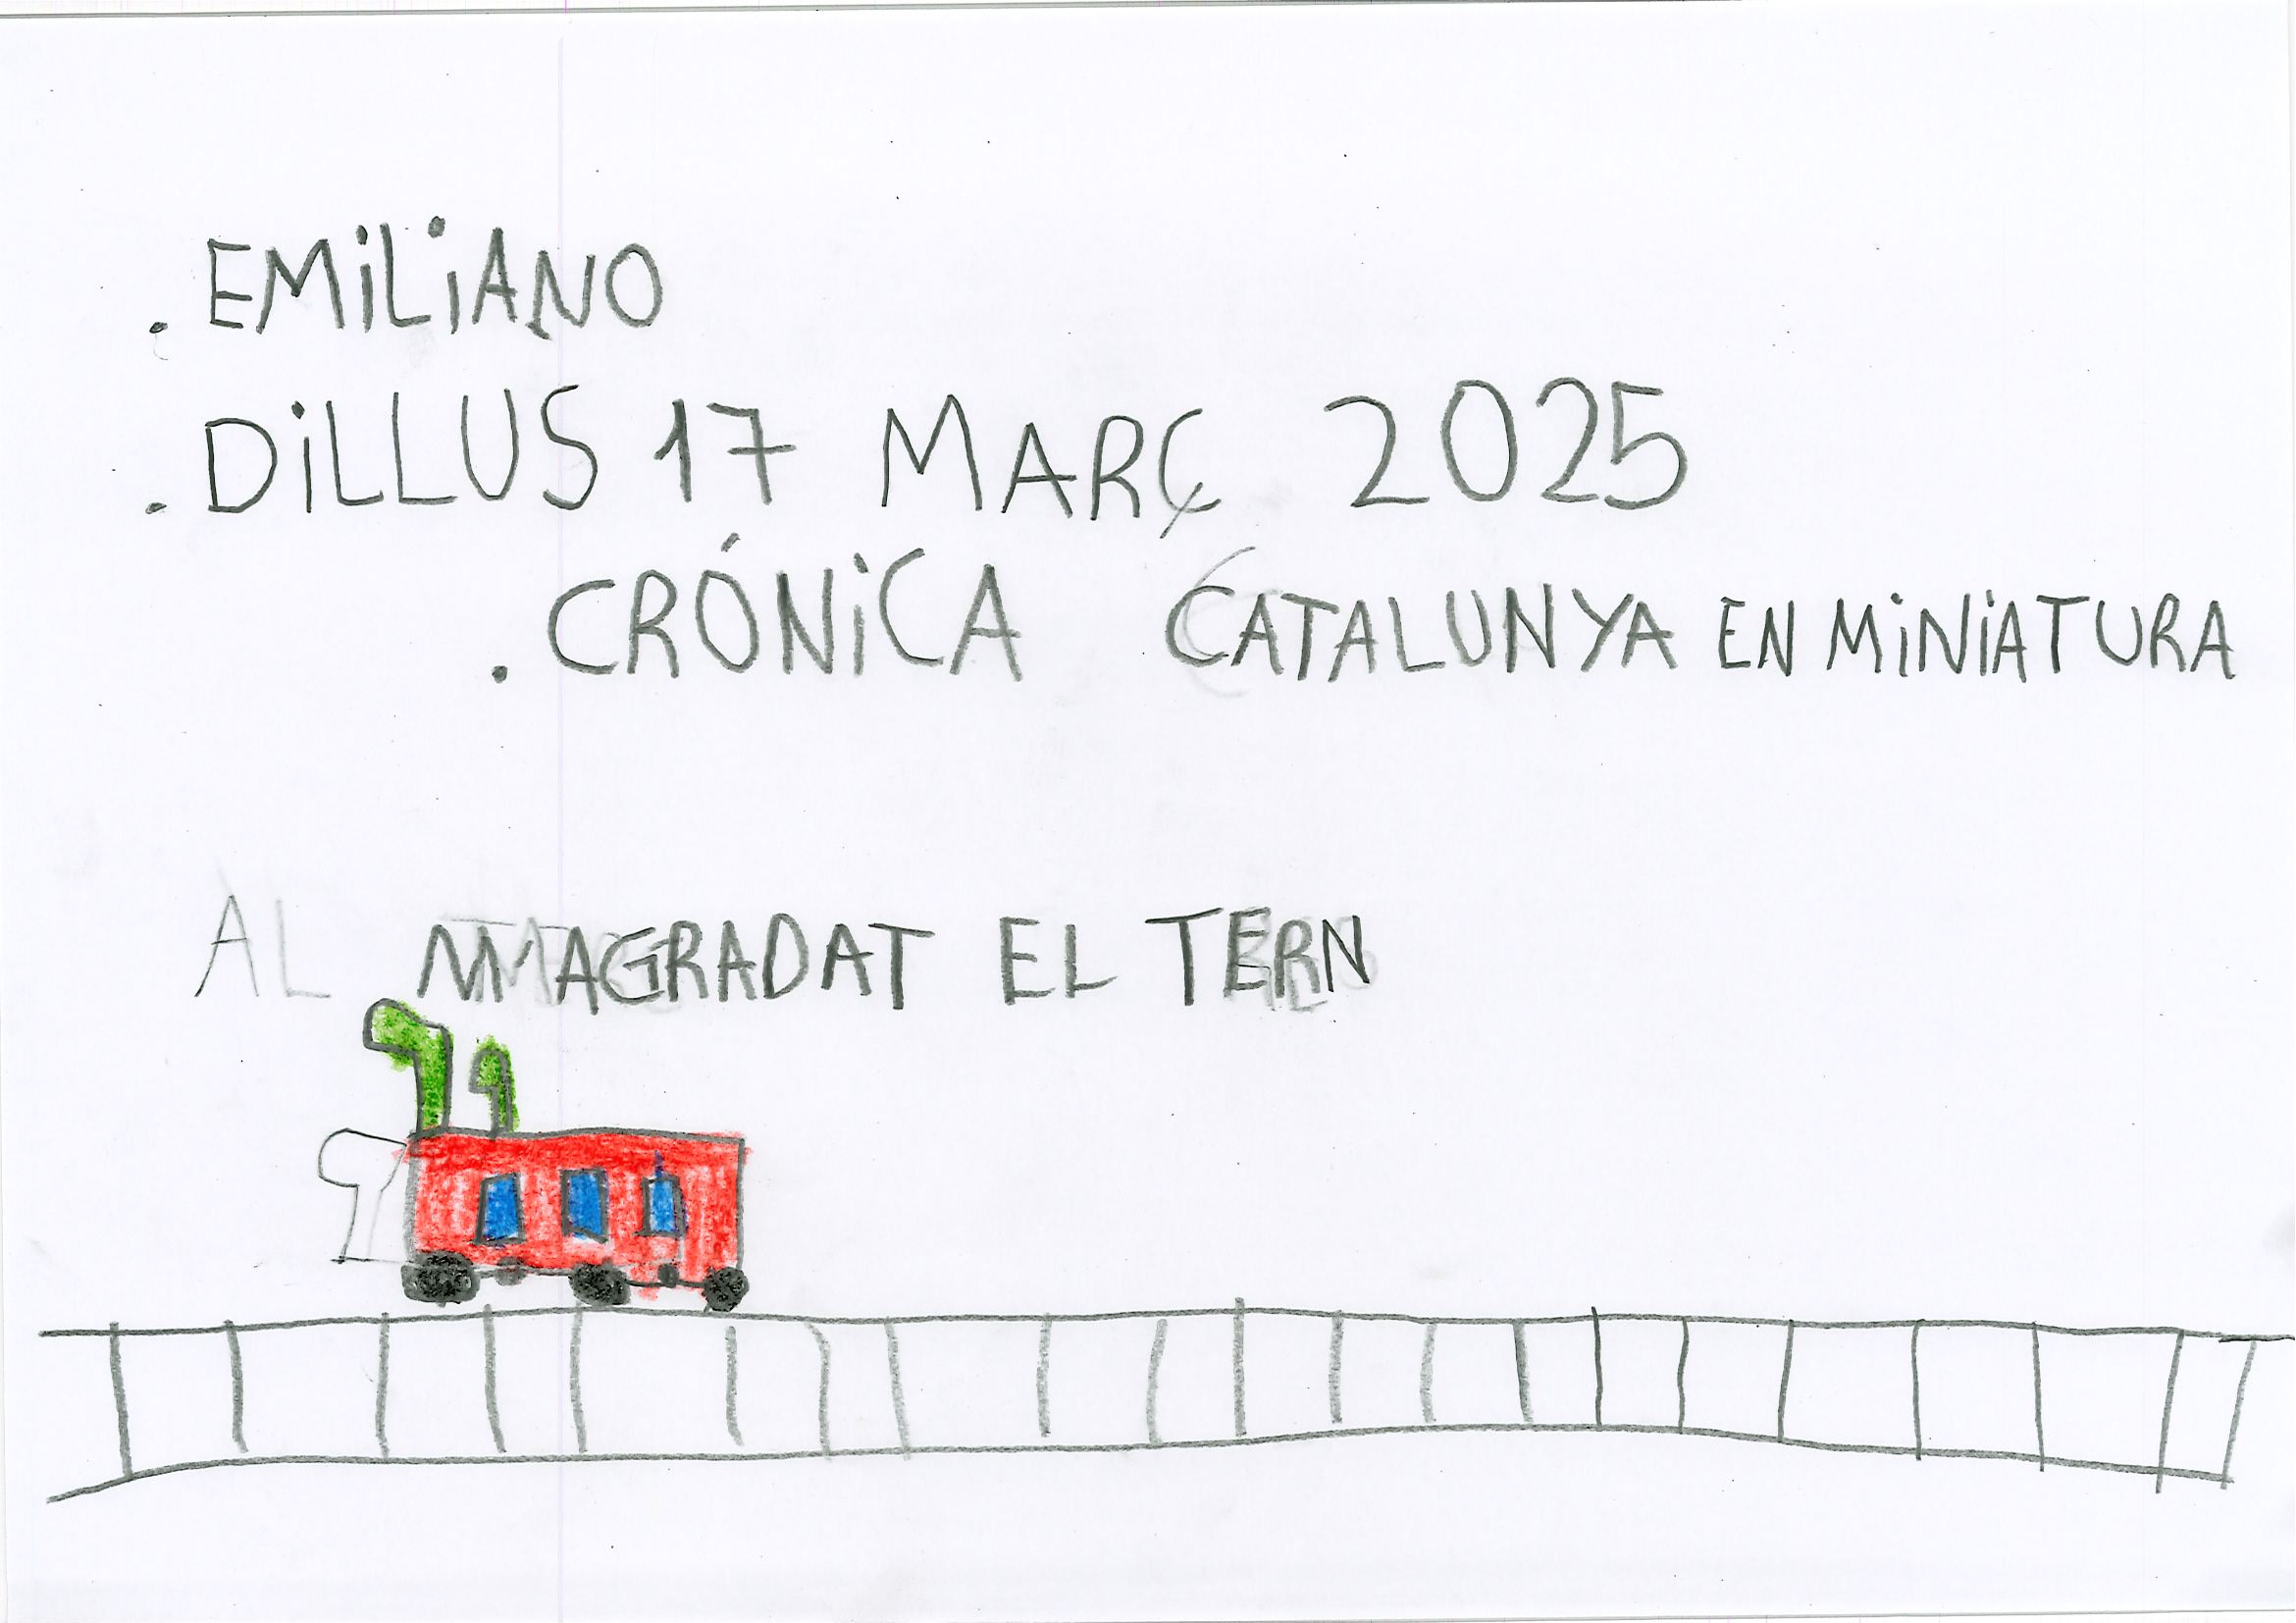 . EMiLiANO
. DiLLUS 17 MARÇ 2025
. CRÓNiCA CATALUNYA EN MiNiATURA
AL MAGRADAT EL TERN